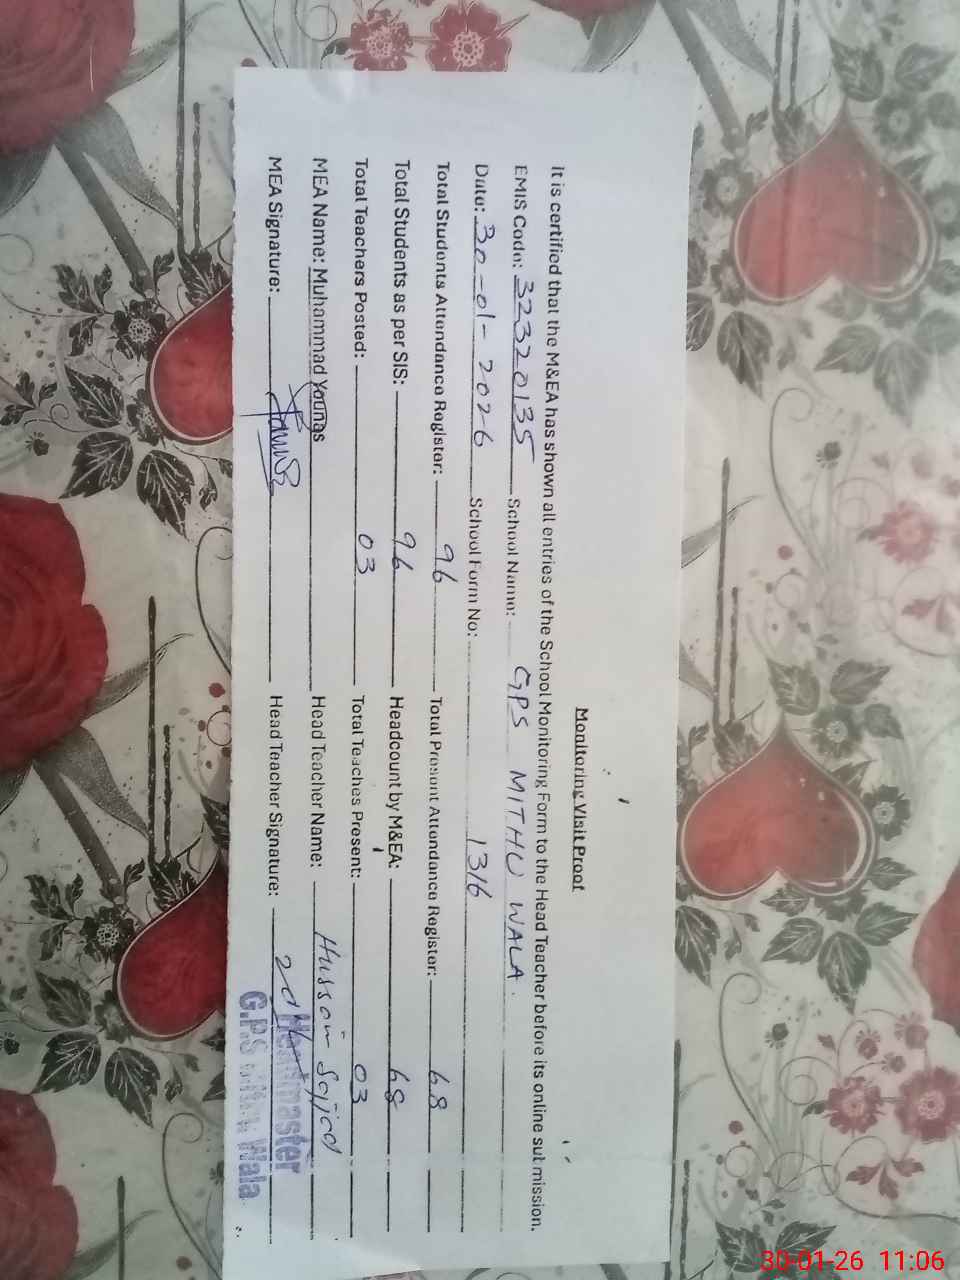 Monitoring Visit Proof
It is certified that the M&EA has shown all entries of the School Monitoring Form to the Head Teacher before its online submission.
EMIS Code: 32320135 School Name: GPS MITHU WALA.
Date: 30-01-2026 School Form No: 1316
Total Students Attendance Register: 96 Total Present Attendance Register: 68
Total Students as per SIS: 96 Headcount by M&EA: 68
Total Teachers Posted: 03 Total Teaches Present: 03
MEA Name: Muhammad Younas Head Teacher Name: Hussain Sajjad
MEA Signature: Head Teacher Signature:
Headmaster
G.P.S Mithu Wala
30-01-26 11:06